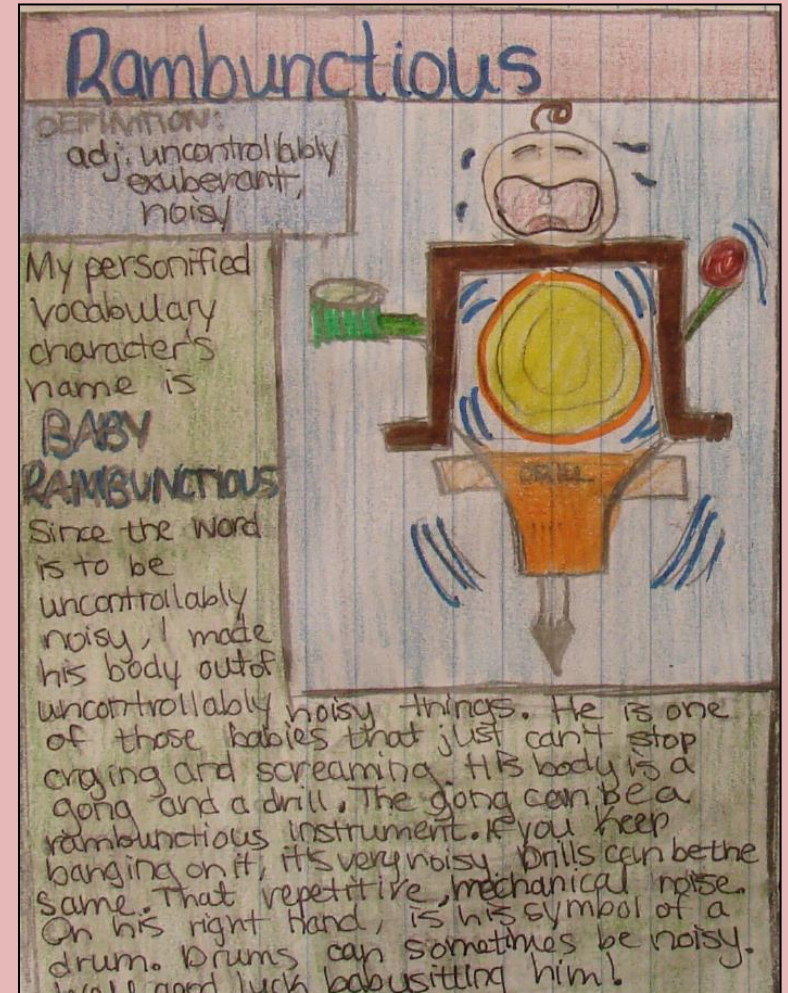 Rambunctious
DEFINITION:
adj. uncontrollably
exuberant,
noisy
My personified
vocabulary
character's
name is
BABY
RAMBUNCTIOUS
Since the word
is to be
uncontrollably
noisy, I made
his body outof
uncontrollably noisy things. He is one
of those babies that just can't stop
crying and screaming. His body is a
gong and a drill. The gong can be a
rambunctious instrument. If you keep
banging on it, it's very noisy. Drills can be the
same. That repetitive, mechanical noise.
On his right hand, is his symbol of a
drum. Drums can sometimes be noisy.
Well good luck babysitting him!